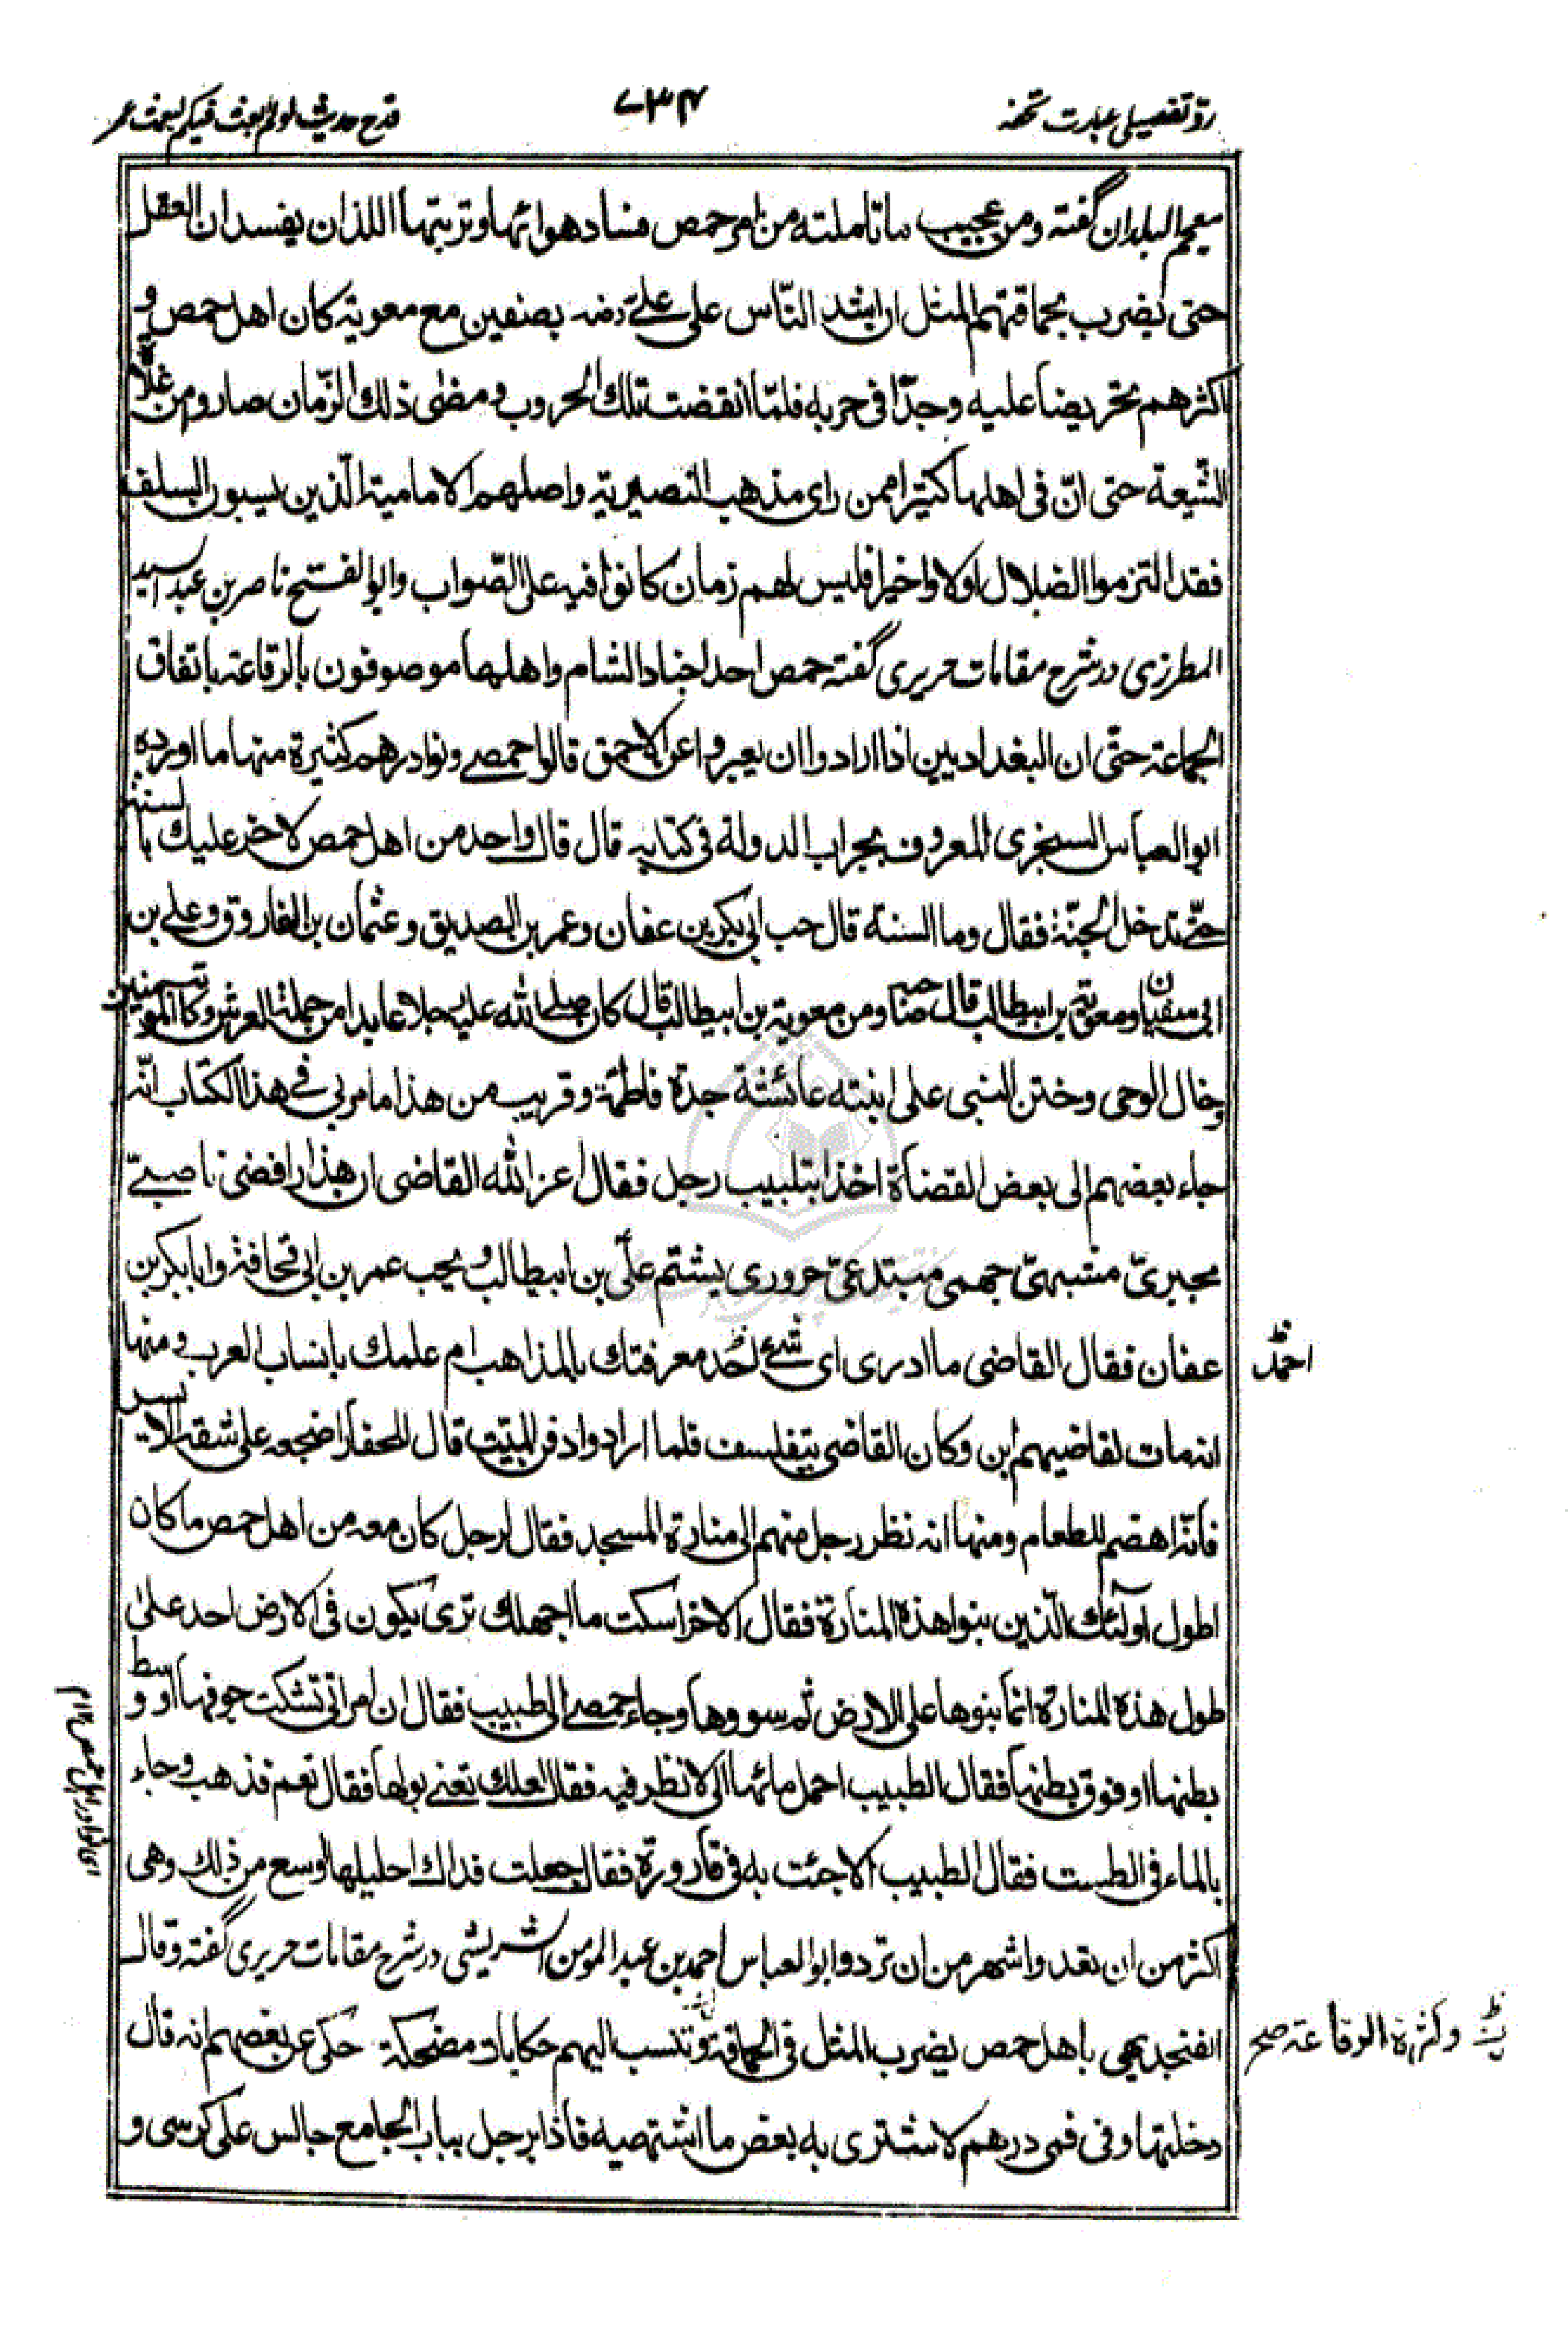 ردّ تفصیلی عبارت تحفه
۷۳۴
قدح حدیث لو لم ابعث فیکم لبعث عمر
معجم البلدان گفته ومن عجیب ما تاملته من امر حمص فساد هوائها وتربتها اللذان یفسدان العقل
حتی یضرب بحماقتهم المثل ان اشد النّاس علی علیّ رضه بصفین مع معویة کان اهل حمص و
اکثرهم تحریضا علیه وجدّا فی حربه فلمّا انقضت تلک الحروب ومضی ذلک الزّمان صاروا من غلاة
الشّیعة حتی انّ فی اهلها کثیرا ممن رای مذهب النصیریة واصلهم الامامیة الّذین یسبون السلف
فقد التزموا الضلال اولا واخیرا فلیس لهم زمان کانوا فیه علی الصّواب وابو الفتح ناصر بن عبد السید
المطرزی در شرح مقامات حریری گفته حمص احد اجناد الشام واهلها موصوفون بالرقاعة باتفاق
الجماعة حتّی ان البغدادیین اذا ارادوا ان یعبروا عن الاحمق قالوا حمصی ونوادرهم کثیرة منها ما اورده
ابو العباس السنجری المعروف بجراب الدولة فی کتابه قال قال واحد من اهل حمص لاخر علیک بالسنة
حتّی تدخل الجنّة فقال وما السنة قال حب ابی بکر بن عفان وعمر بن الصدیق وعثمان بن الفاروق وعلی بن
ابی سفیان ومعویة بن ابیطالب قال ومن معویة بن ابیطالب قال کان صلی الله علیه رجلا عابدا من حملة العرش وکاتب المؤمنین
وخال الوحی وختن النبی علی ابنته عائشة جدة فاطمة وقریب من هذا ما مر بی فی هذا الکتاب انّه
جاء بعضهم الی بعض القضاة اخذا بتلبیب رجل فقال اعز الله القاضی ان هذا رافضی ناصبیّ
مجبریّ مشبهیّ جهمی مبتدعیّ حروری یشتم علیّ بن ابیطالب ویحب عمر بن ابی قحافة وابا بکر بن
عفان فقال القاضی ما ادری ای شیء احمد معرفتک بالمذاهب ام علمک بانساب العرب ومنها
احمد
انه مات لقاضیهم ابن وکان القاضی یتفلسف فلما ارادوا دفن المیّت قال للحفار اضجعه علی شقه الایسر
فانّه اهضم للطعام ومنها انه نظر رجل منهم الی منارة المسجد فقال لرجل کان معه من اهل حمص ما کان
اطول اولئک الّذین بنوا هذه المنارة فقال الاخر اسکت ما اجهلک تری یکون فی الارض احد علی
طول هذه المنارة انّما بنوها علی الارض ثم سووها وجاء حمصی الی طبیب فقال ان امراتی تشکت جوفها او وسط
بطنها او فوق بطنها فقال الطبیب احمل مائها الی لانظر فیه فقال لعلک تعنی بولها فقال نعم فذهب وجاء
بالماء فی الطست فقال الطبیب الا جئت به فی قارورة فقال جعلت فداک احلیلها اوسع من ذلک وهی
اکثر من ان تعد واشهر من ان ترد وابو العباس احمد بن عبد المومن الشریشی در شرح مقامات حریری گفته وقال
الفنجدیهی باهل حمص یضرب المثل فی الحماقة وتنسب الیهم حکایات مضحکة حکی عن بعضهم انه قال
وکثرة الرقاعة صح
دخلتها وفی فمی درهم لاشتری به بعض ما اشتهیه فاذا برجل بباب الجامع جالس علی کرسی و